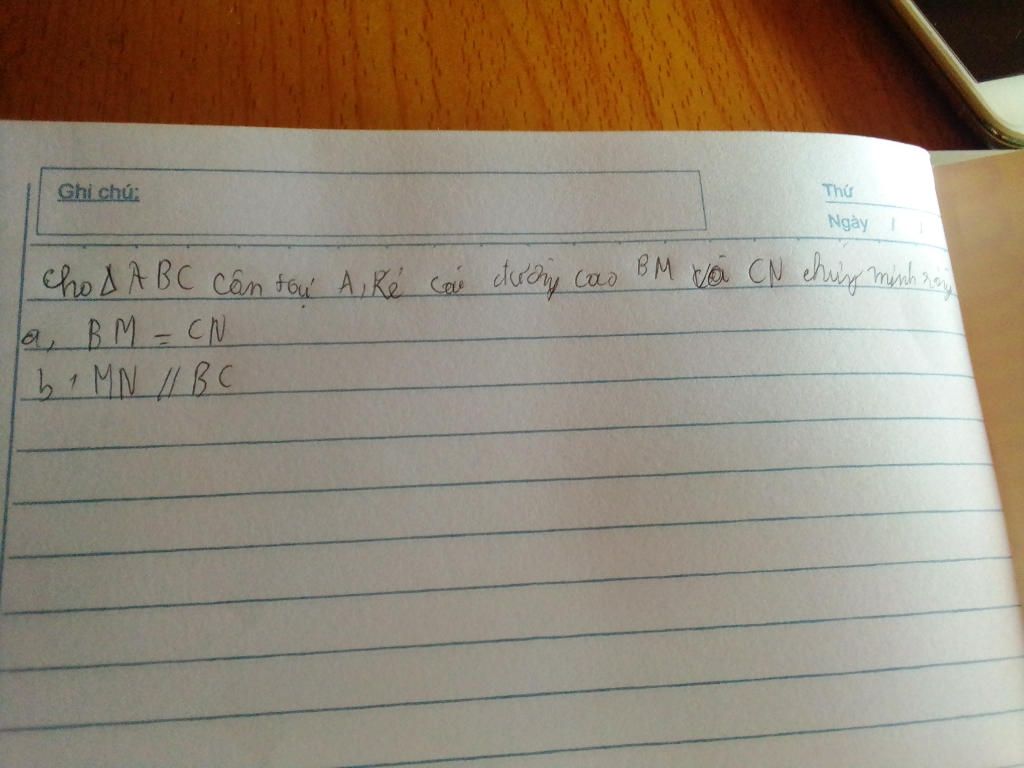 Ghi chú:
Thứ
Ngày / /
Cho Δ ABC cân tại A, Kẻ các đường cao BM và CN chứng minh rằng
a, BM = CN
b, MN // BC